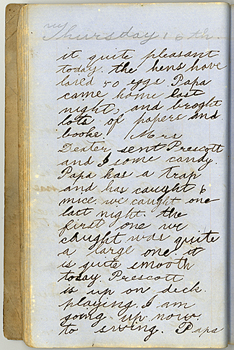 Thursday 16th.
it quite pleasant
today. the hens have
laied 50 eggs Papa
came home last
night, and broght
lots of papers and
books. Mrs
Dexter sent Prescott
and I some candy.
Papa has a trap
and has caught 6
mice we caught one
last night. the
first one we
caught was quite
a large one it
is quite smooth
today. Prescott
is up on deck
playing. I am
going up now
to swing. Papa